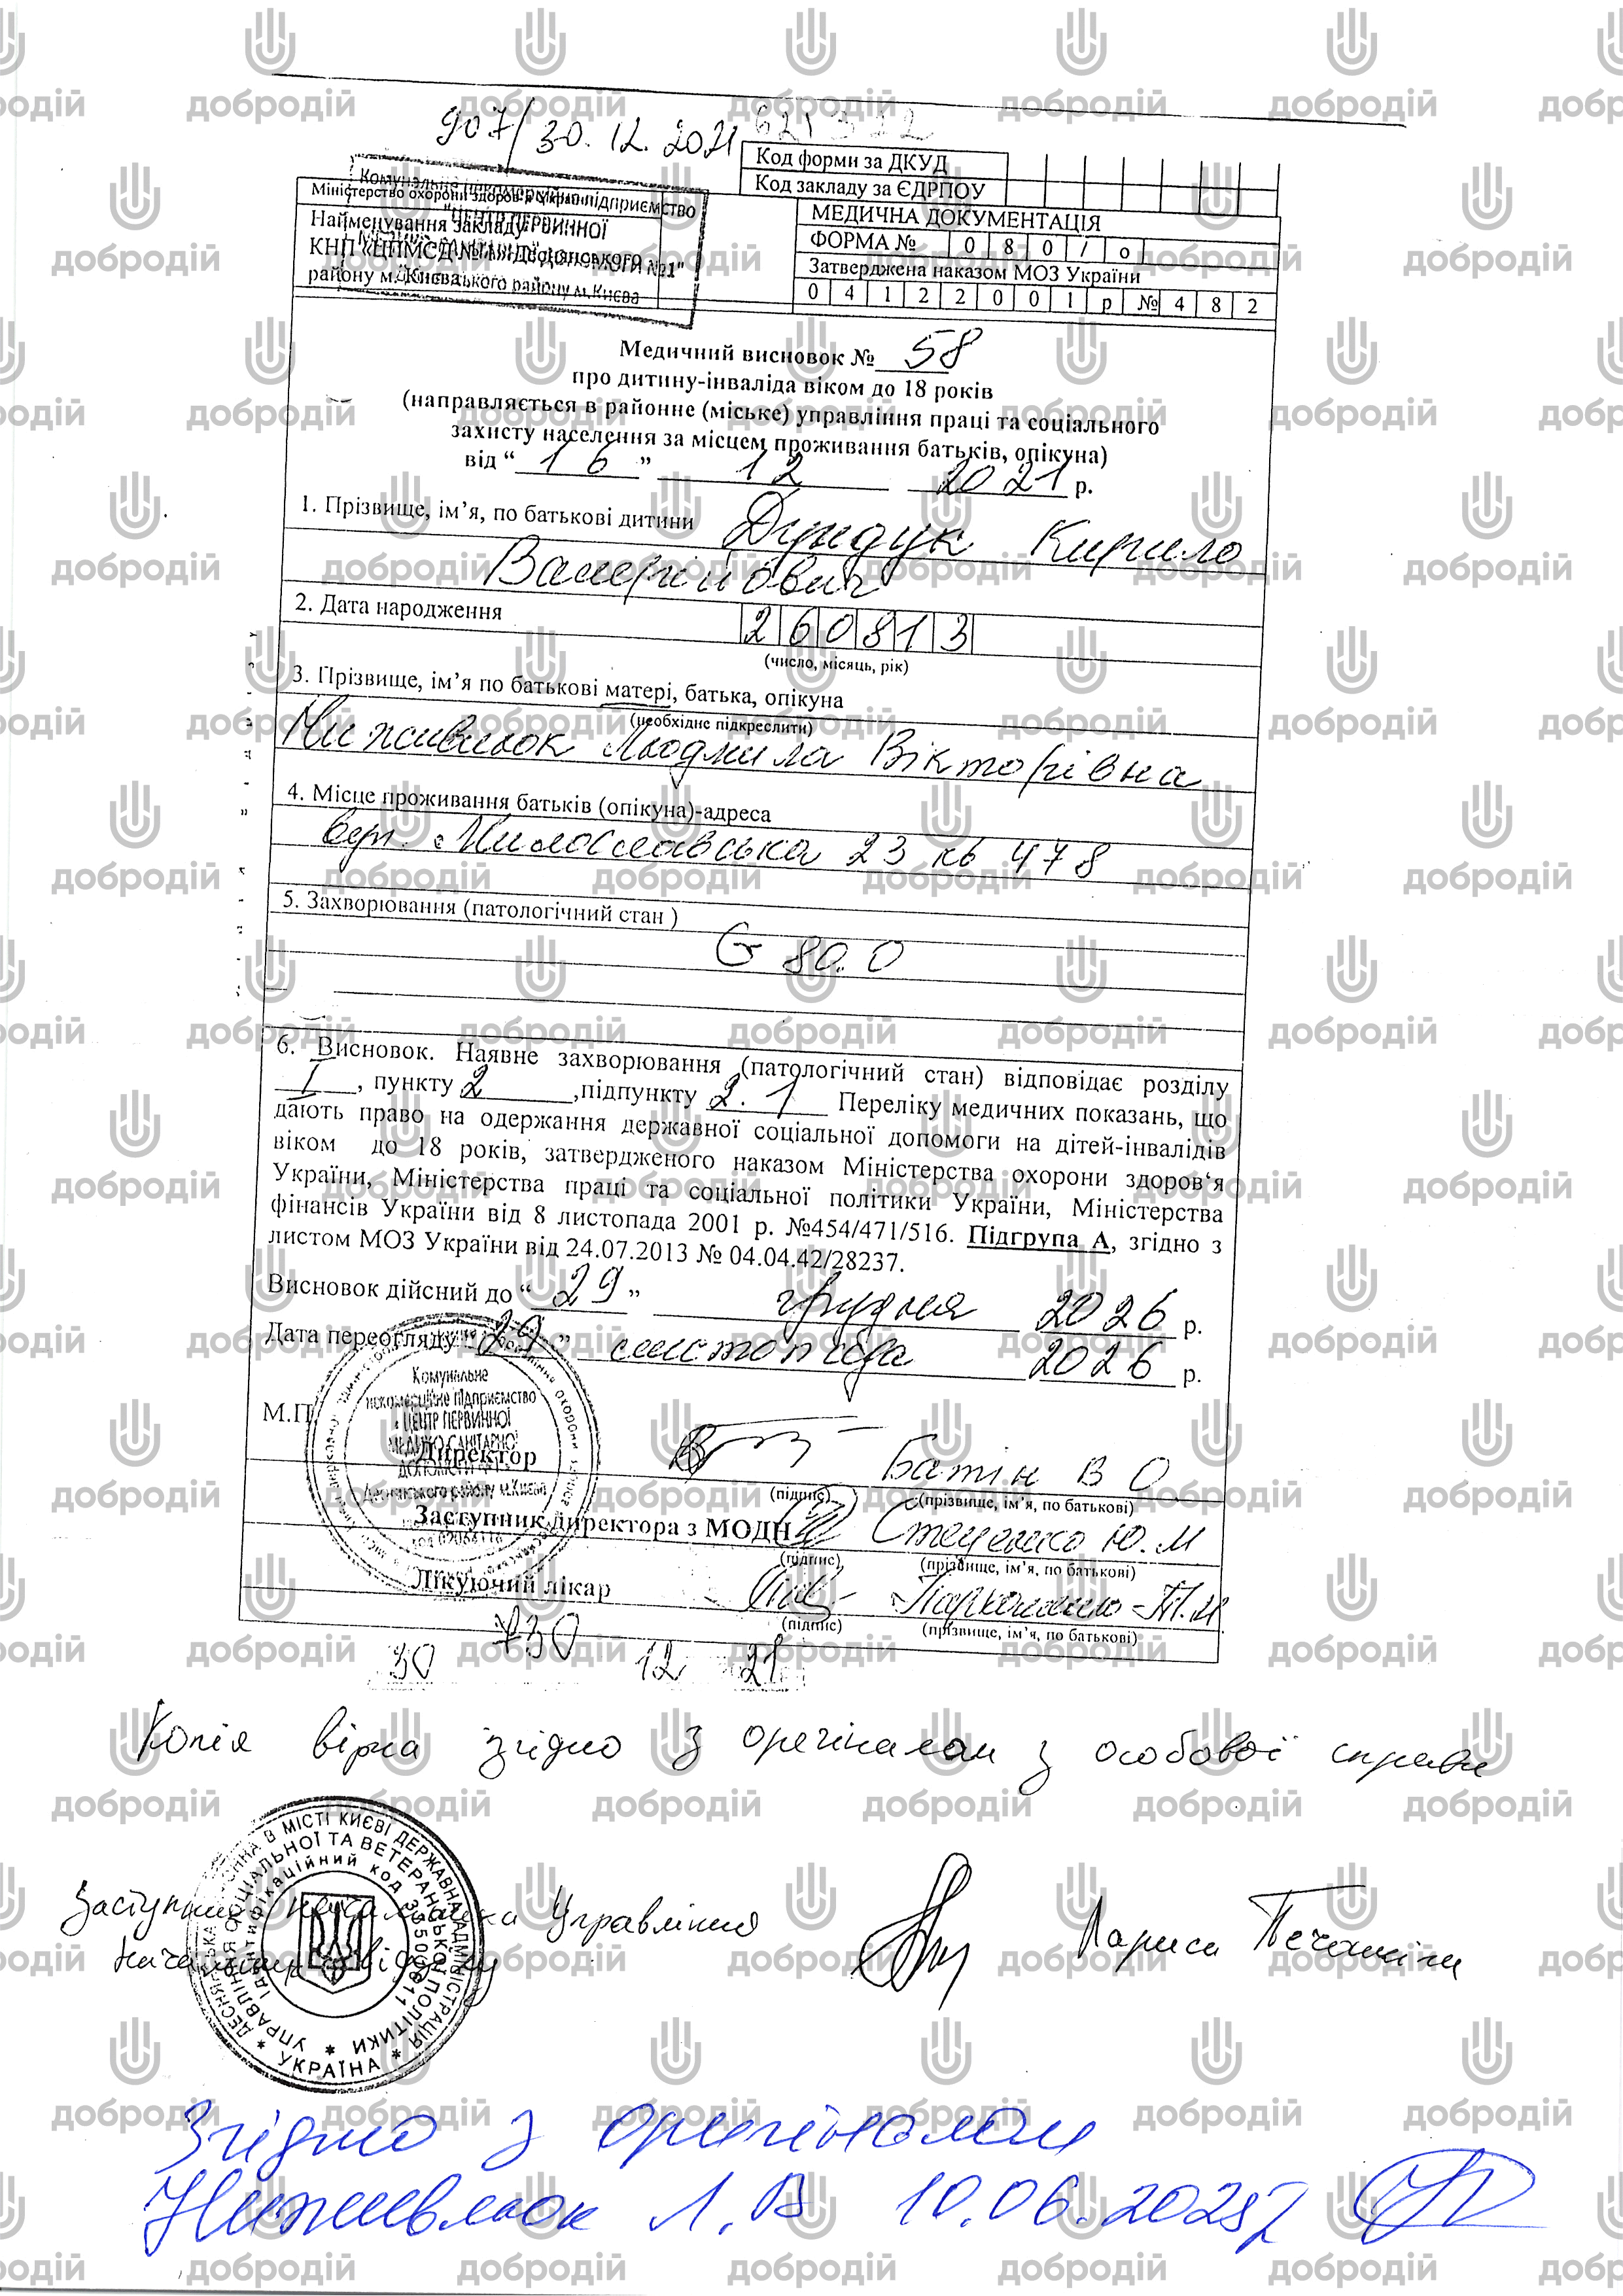 907/30.12.2021 621322
Код форми за ДКУД
Код закладу за ЄДРПОУ
Міністерство охорони здоров'я України
Найменування закладу
КНП «ЦПМСД №1» Деснянського
району м. Києва
Комунальне некомерційне підприємство
"ЦЕНТР ПЕРВИННОЇ
ДОПОМОГИ №1"
Деснянського району м.Києва
МЕДИЧНА ДОКУМЕНТАЦІЯ
ФОРМА № 0 8 0 / о
Затверджена наказом МОЗ України
0 4 1 2 2 0 0 1 р № 4 8 2
Медичний висновок № 58
про дитину-інваліда віком до 18 років
(направляється в районне (міське) управління праці та соціального
захисту населення за місцем проживання батьків, опікуна)
від “ 16 ” 12 2021 р.
1. Прізвище, ім’я, по батькові дитини Дундук Кирило
Валерійович
2. Дата народження 2 6 0 8 1 3
(число, місяць, рік)
3. Прізвище, ім’я по батькові матері, батька, опікуна
(необхідне підкреслити)
Ниживлюк Людмила Вікторівна
4. Місце проживання батьків (опікуна)-адреса
вул. Милославська 23 кв 478
5. Захворювання (патологічний стан )
G 80.0
6. Висновок. Наявне захворювання (патологічний стан) відповідає розділу
I, пункту 2 ,підпункту 2.1 Переліку медичних показань, що
дають право на одержання державної соціальної допомоги на дітей-інвалідів
віком до 18 років, затвердженого наказом Міністерства охорони здоров‘я
України, Міністерства праці та соціальної політики України, Міністерства
фінансів України від 8 листопада 2001 р. №454/471/516. Підгрупа А, згідно з
листом МОЗ України від 24.07.2013 № 04.04.42/28237.
Висновок дійсний до “ 29 ” грудня 2026 р.
Дата переогляду “ 29 ” листопада 2026 р.
М.П
Комунальне
некомерційне підприємство
ЦЕНТР ПЕРВИННОЇ
МЕДИКО САНІТАРНОЇ
ДОПОМОГИ №1
Деснянського району м.Києва
Директор Батін В О
(підпис) (прізвище, ім’я, по батькові)
Заступник директора з МОДН Стеценко Ю.М
(підпис) (прізвище, ім’я, по батькові)
Лікуючий лікар
(підпис) (прізвище, ім’я, по батькові)
730
30 12 21
Копія вірна згідно з оригіналом з особової справи
Заступник начальника Управління
начальник відділу Лариса
ДЕСНЯНСЬКА РАЙОННА В МІСТІ КИЄВІ ДЕРЖАВНА АДМІНІСТРАЦІЯ
УПРАВЛІННЯ СОЦІАЛЬНОЇ ТА ВЕТЕРАНСЬКОЇ ПОЛІТИКИ
ідентифікаційний код
УКРАЇНА
Згідно з оригіналом
Ниживлюк Л.В 10.06.2025
добродій